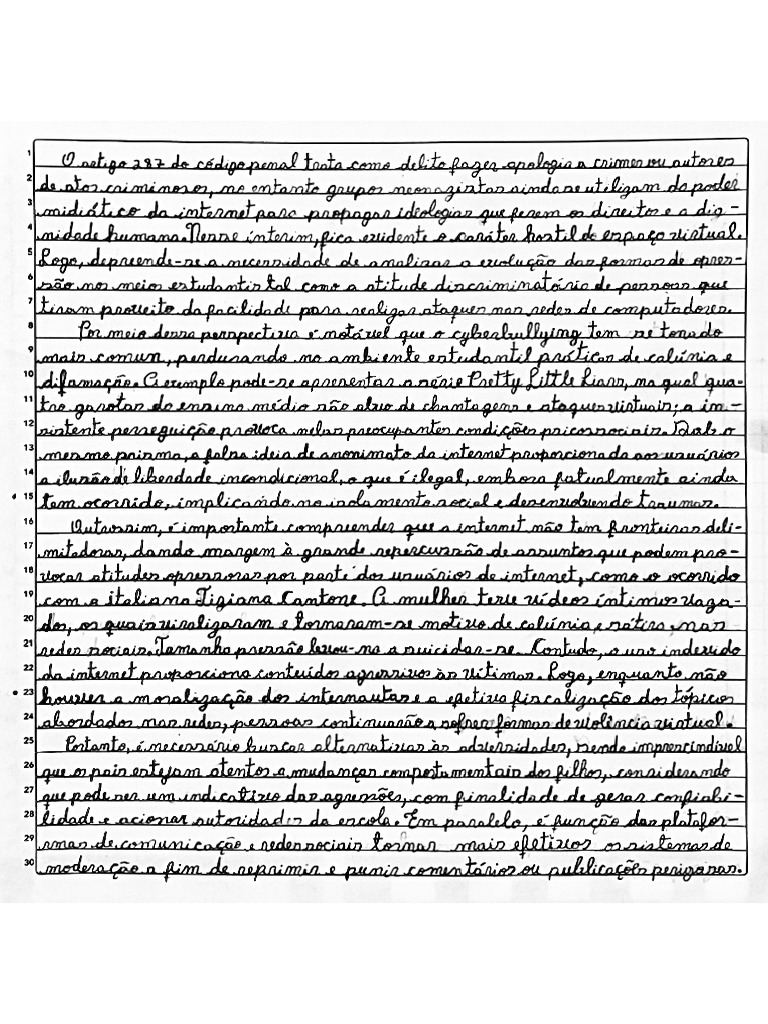 1 O artigo 287 do código penal trata como delito fazer apologia a crimes ou autores
2 de atos criminosos, no entanto grupos neonazistas ainda se utilizam do poder
3 midiático da internet para propagar ideologias que ferem os direitos e a dig-
4 nidade humana. Nesse ínterim, fica evidente o caráter hostil do espaço virtual.
5 Logo, depreende-se a necessidade de analisar a evolução das formas de opres-
6 são nos meios estudantis tal como a atitude discriminatória de pessoas que
7 tiram proveito da facilidade para realizar ataques nas redes de computadores.
8 Por meio dessa perspectiva é notável que o cyberbullying tem se tonado
9 mais comun, perdurando no ambiente estudantil práticas de calúnia e
10 difamação. A exemplo pode-se apresentar a série Pretty Little Liars, na qual qua-
11 tro garotas do ensino médio são alvo de chantagens e ataques virtuais; a in-
12 sistente perseguição provoca nelas preocupantes condições psicossociais. Sob o
13 mesmo prisma, a falsa ideia de anonimato da internet proporciona aos usuários
14 a ilusão de liberdade incondicional, o que é ilegal, embora fatualmente ainda
15 tem ocorrido, implicando no isolamento social e desenvolvendo traumas.
16 Outrossim, é importante compreender que a internet não tem fronteiras deli-
17 mitadoras, dando margem à grande repercurssão de assuntos que podem pro-
18 vocar atitudes opressoras por parte dos usuários de internet, como o ocorrido
19 com a italiana Tiziana Cantone. A mulher teve vídeos íntimos vaza-
20 dos, os quais viralizaram e tornaram-se motivo de calúnia e sátira, nas
21 redes sociais. Tamanha pressão levou-na a suicidar-se. Contudo, o uso indevido
22 da internet proporciona conteúdos agressivos às vítimas. Logo, enquanto não
23 houver a moralização dos internautas e a efetiva fiscalização dos tópicos
24 abordados nas redes, pessoas continuarão a sofrer formas de violência virtual.
25 Portanto, é necessário buscar alternativas às adversidades, sendo imprescindível
26 que os pais estejam atentos a mudanças comportamentais dos filhos, considerando
27 que pode ser um indicativo das agressões, com finalidade de gerar confiabi-
28 lidade e acionar autoridades da escola. Em paralelo, é função das platafor-
29 mas de comunicação e redes sociais tornar mais efetivos os sistemas de
30 moderação a fim de reprimir e punir comentários ou publicações perigosas.